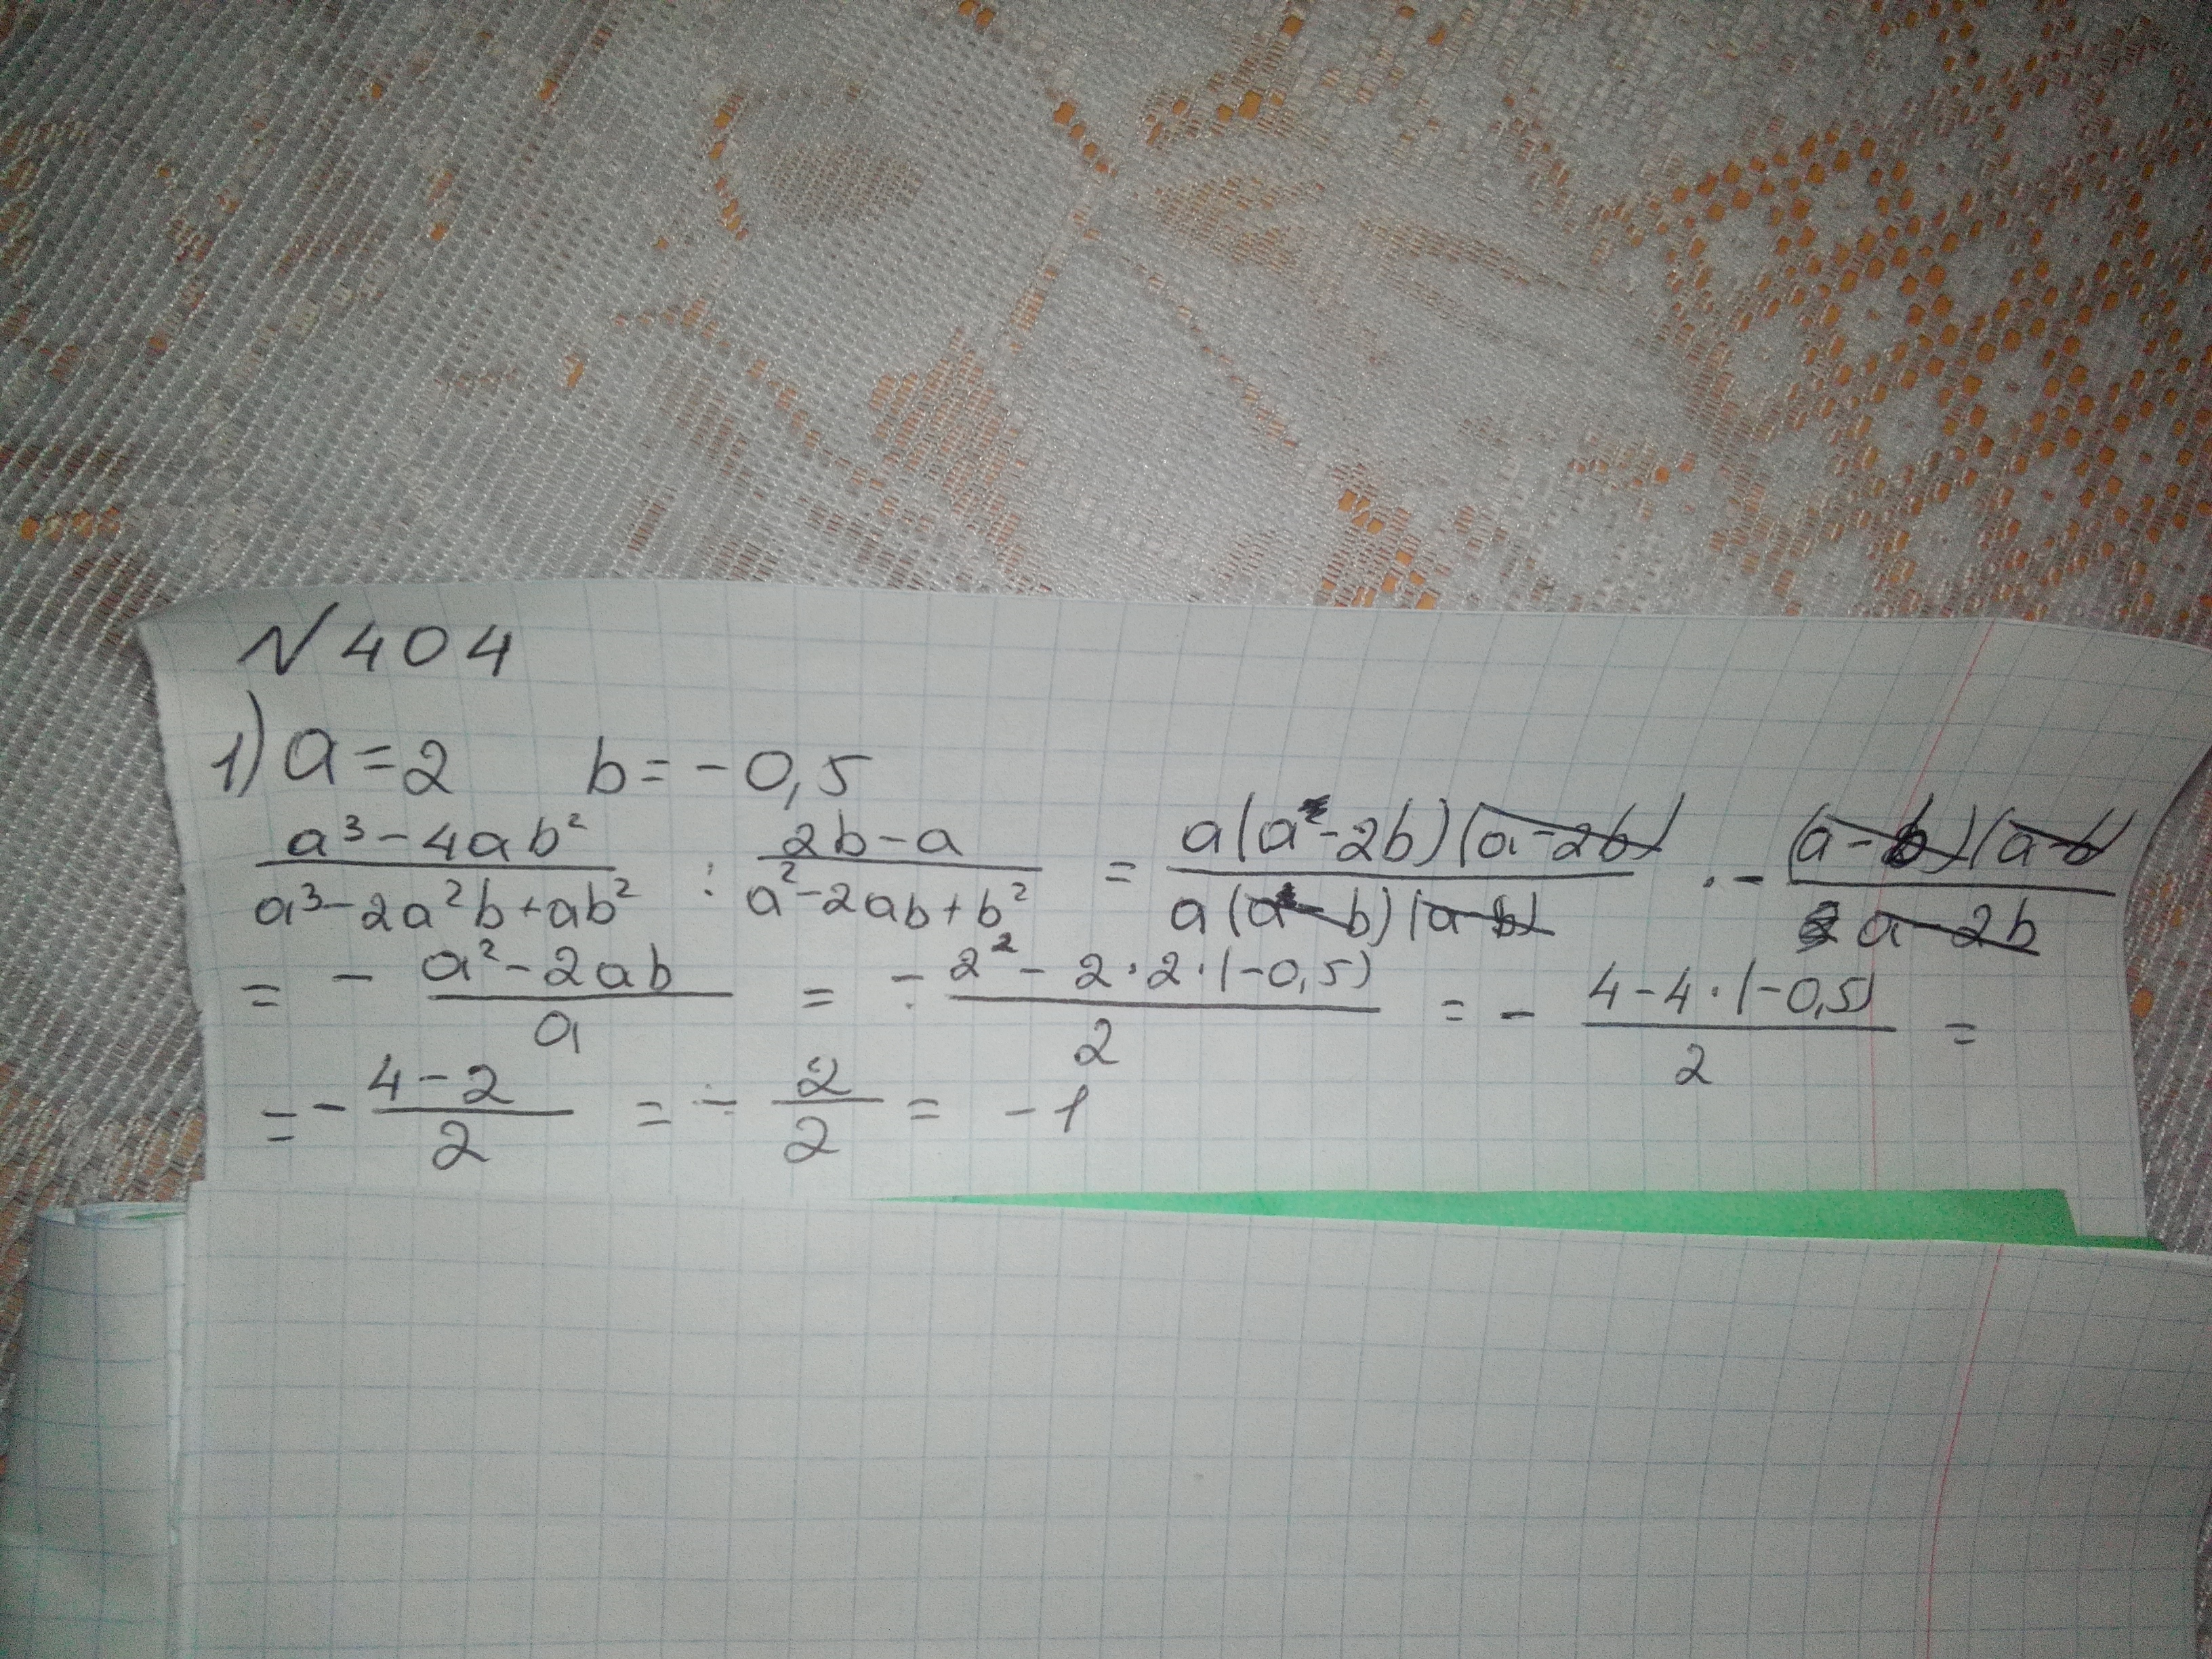 N 404
1) a = 2 b = - 0,5
a³ - 4ab² / a³ - 2a²b + ab² : 2b - a / a² - 2ab + b² = a(a - 2b)(a - 2b) / a(a - b)(a - b) · - (a - b)(a - b) / a - 2b
= - a² - 2ab / a = - 2² - 2 · 2 · (-0,5) / 2 = - 4 - 4 · (-0,5) / 2 =
= - 4 - 2 / 2 = - 2 / 2 = - 1